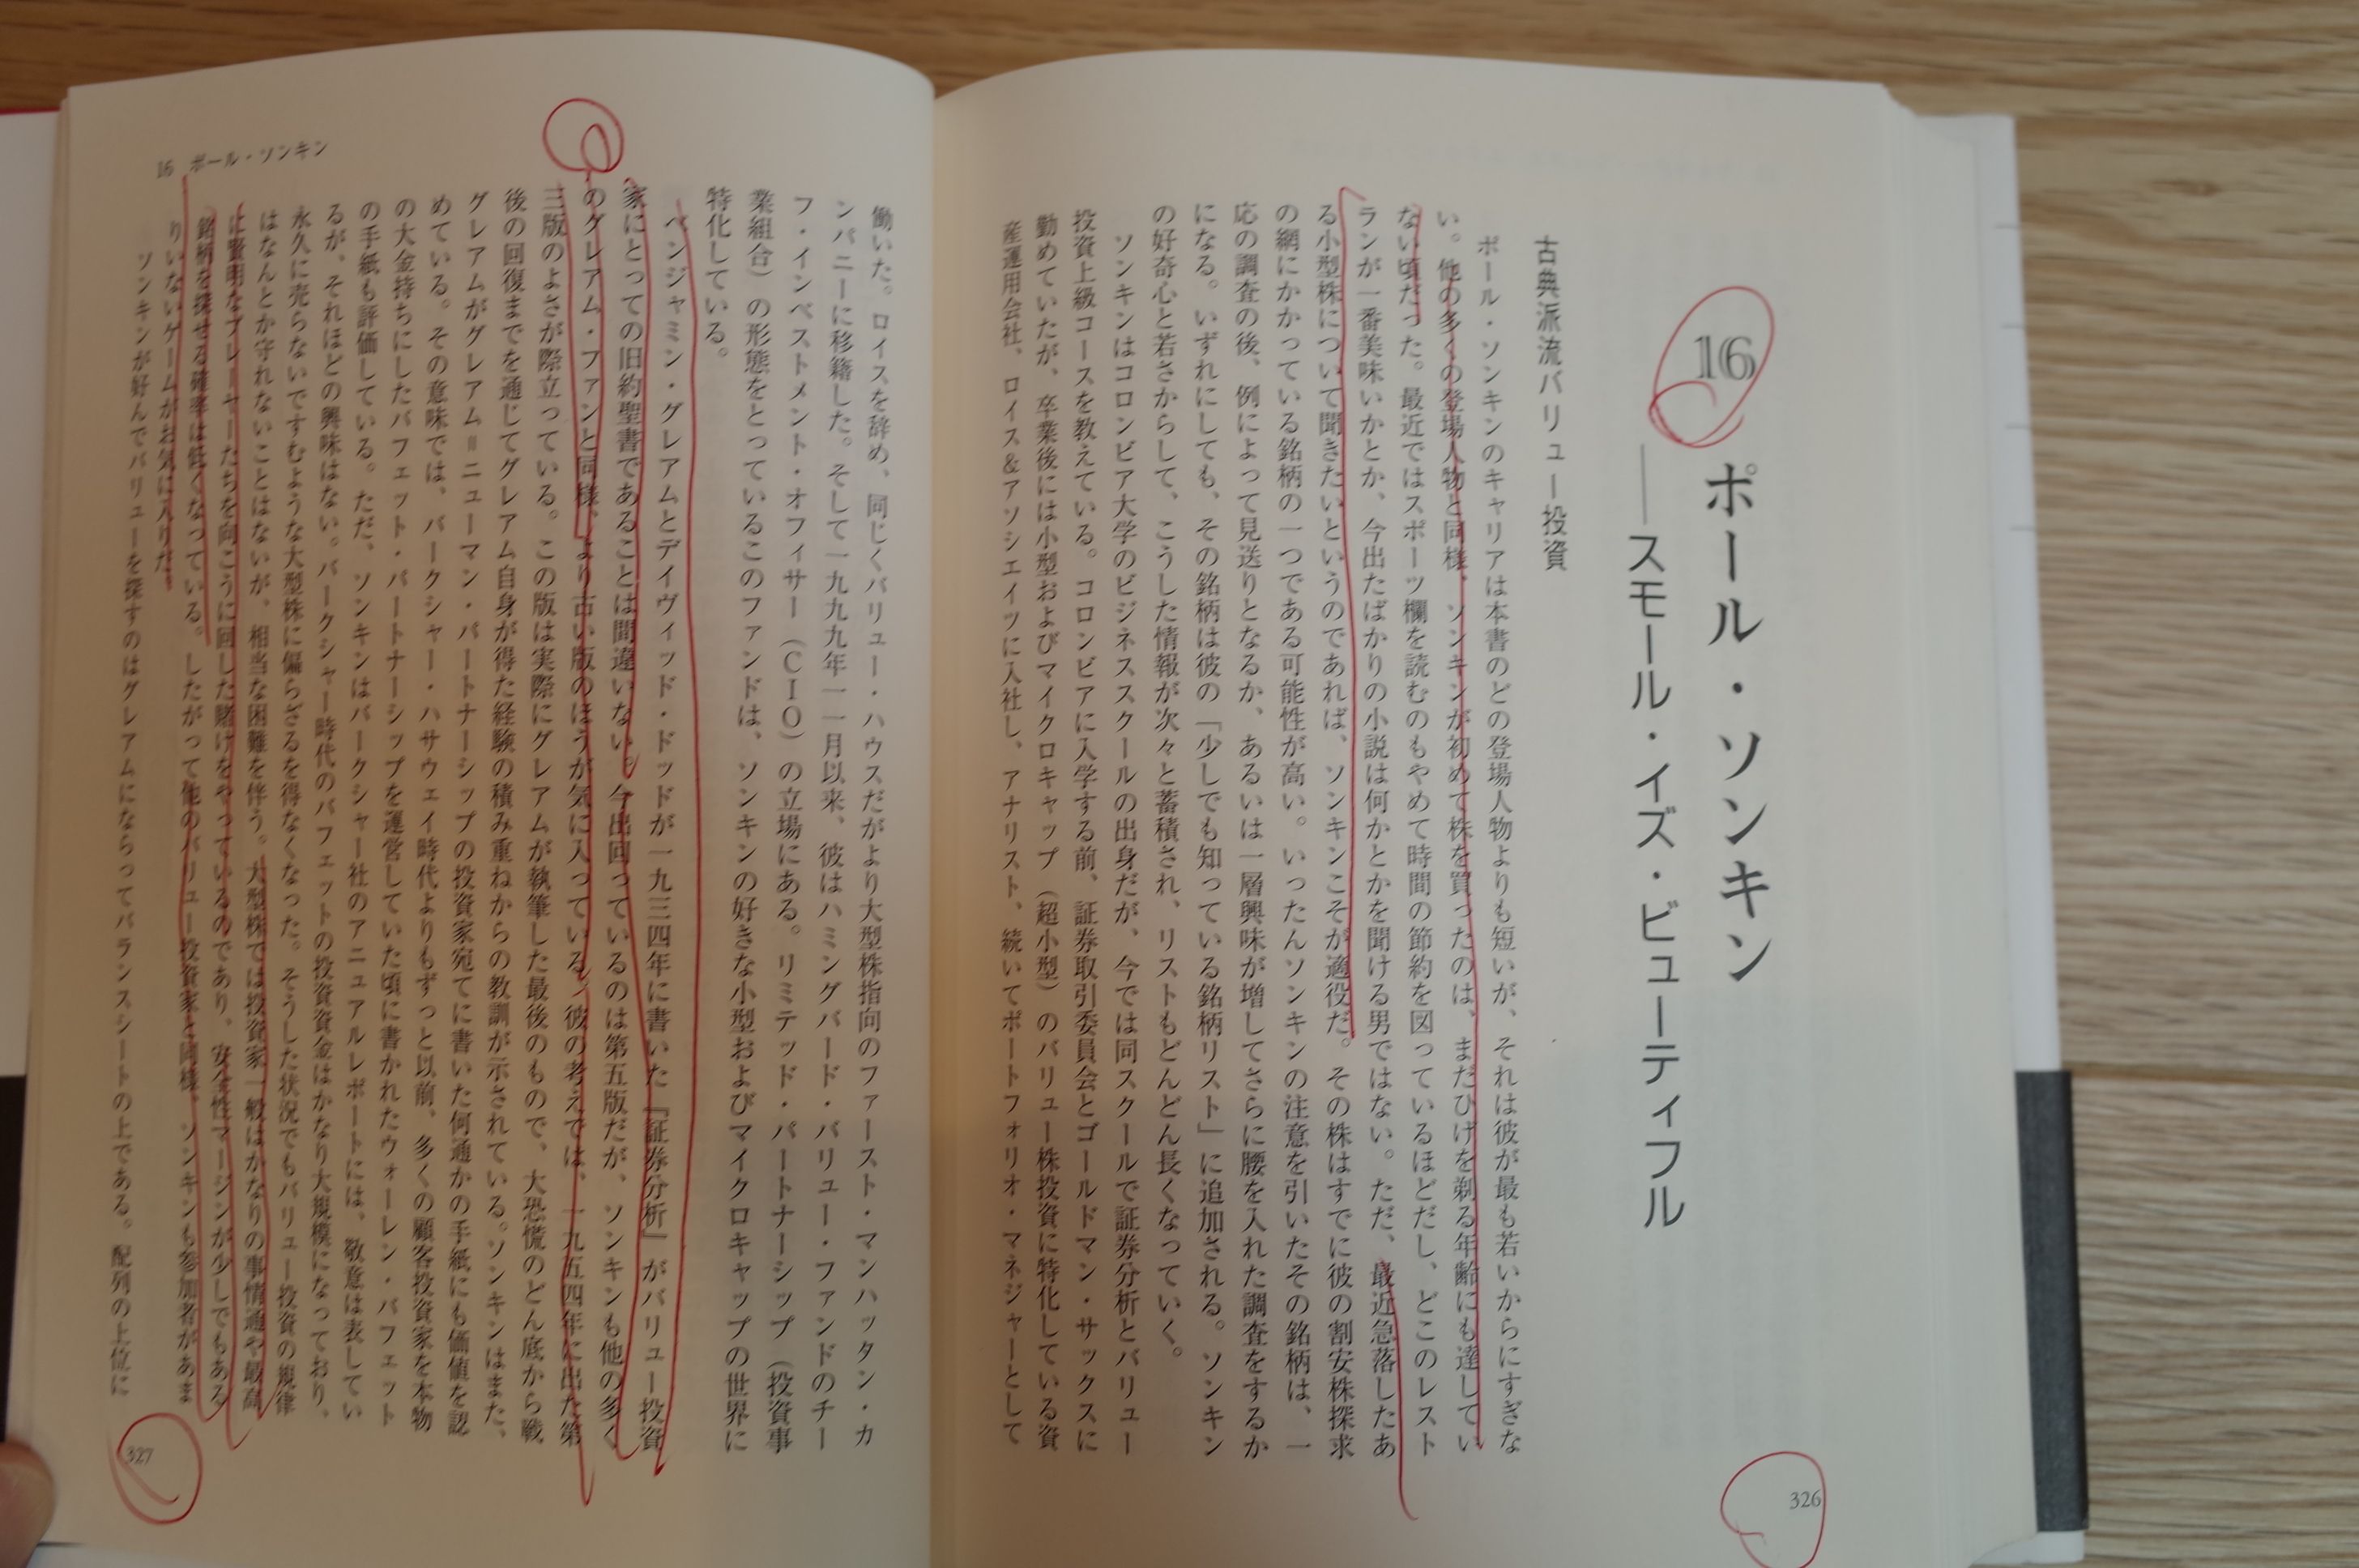 16
ポール・ソンキン
――スモール・イズ・ビューティフル
古典派流バリュー投資
ポール・ソンキンのキャリアは本書のどの登場人物よりも短いが、それは彼が最も若いからにすぎな
い。他の多くの登場人物と同様、ソンキンが初めて株を買ったのは、まだひげを剃る年齢にも達してい
ない頃だった。最近ではスポーツ欄を読むのもやめて時間の節約を図っているほどだし、どこのレスト
ランが一番美味いかとか、今出たばかりの小説は何かとかを聞ける男ではない。ただ、最近急落したあ
る小型株について聞きたいというのであれば、ソンキンこそが適役だ。その株はすでに彼の割安株探求
の網にかかっている銘柄の一つである可能性が高い。いったんソンキンの注意を引いたその銘柄は、一
応の調査の後、例によって見送りとなるか、あるいは一層興味が増してさらに腰を入れた調査をするか
になる。いずれにしても、その銘柄は彼の「少しでも知っている銘柄リスト」に追加される。ソンキン
の好奇心と若さからして、こうした情報が次々と蓄積され、リストもどんどん長くなっていく。
ソンキンはコロンビア大学のビジネススクールの出身だが、今では同スクールで証券分析とバリュー
投資上級コースを教えている。コロンビアに入学する前、証券取引委員会とゴールドマン・サックスに
勤めていたが、卒業後には小型およびマイクロキャップ（超小型）のバリュー株投資に特化している資
産運用会社、ロイス&アソシエイツに入社し、アナリスト、続いてポートフォリオ・マネジャーとして
326
16 ポール・ソンキン
働いた。ロイスを辞め、同じくバリュー・ハウスだがより大型株指向のファースト・マンハッタン・カ
ンパニーに移籍した。そして一九九九年一一月以来、彼はハミングバード・バリュー・ファンドのチー
フ・インベストメント・オフィサー（CIO）の立場にある。リミテッド・パートナーシップ（投資事
業組合）の形態をとっているこのファンドは、ソンキンの好きな小型およびマイクロキャップの世界に
特化している。
ベンジャミン・グレアムとデイヴィッド・ドッドが一九三四年に書いた『証券分析』がバリュー投資
家にとっての旧約聖書であることは間違いない。今出回っているのは第五版だが、ソンキンも他の多く
のグレアム・ファンと同様、より古い版のほうが気に入っている。彼の考えでは、一九五四年に出た第
三版のよさが際立っている。この版は実際にグレアムが執筆した最後のもので、大恐慌のどん底から戦
後の回復までを通じてグレアム自身が得た経験の積み重ねからの教訓が示されている。ソンキンはまた、
グレアムがグレアム＝ニューマン・パートナーシップの投資家宛てに書いた何通かの手紙にも価値を認
めている。その意味では、バークシャー・ハサウェイ時代よりもずっと以前、多くの顧客投資家を本物
の大金持ちにしたバフェット・パートナーシップを運営していた頃に書かれたウォーレン・バフェット
の手紙も評価している。ただ、ソンキンはバークシャー社のアニュアルレポートには、敬意は表してい
るが、それほどの興味はない。バークシャー時代のバフェットの投資資金はかなり大規模になっており、
永久に売らないですむような大型株に偏らざるを得なくなった。そうした状況でもバリュー投資の規律
はなんとか守れないことはないが、相当な困難を伴う。大型株では投資家一般はかなりの事情通や最高
に賢明なプレーヤーたちを向こうに回した賭けをやっているのであり、安全性マージンが少しでもある
銘柄を探せる確率は低くなっている。したがって他のバリュー投資家と同様、ソンキンも参加者があま
りいないゲームがお気に入りだ。
ソンキンが好んでバリューを探すのはグレアムにならってバランスシートの上である。配列の上位に
327